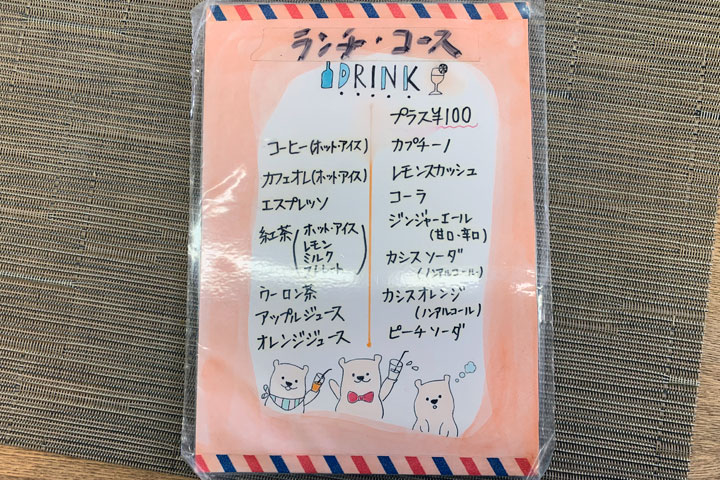 ランチ・コース
DRINK
コーヒー(ホット・アイス)
カフェオレ(ホット・アイス)
エスプレッソ
紅茶(ホット・アイス
レモン
ミルク
ストレート)
ウーロン茶
アップルジュース
オレンジジュース
プラス¥100
カプチーノ
レモンスカッシュ
コーラ
ジンジャーエール
(甘口・辛口)
カシスソーダ
(ノンアルコール)
カシスオレンジ
(ノンアルコール)
ピーチソーダ